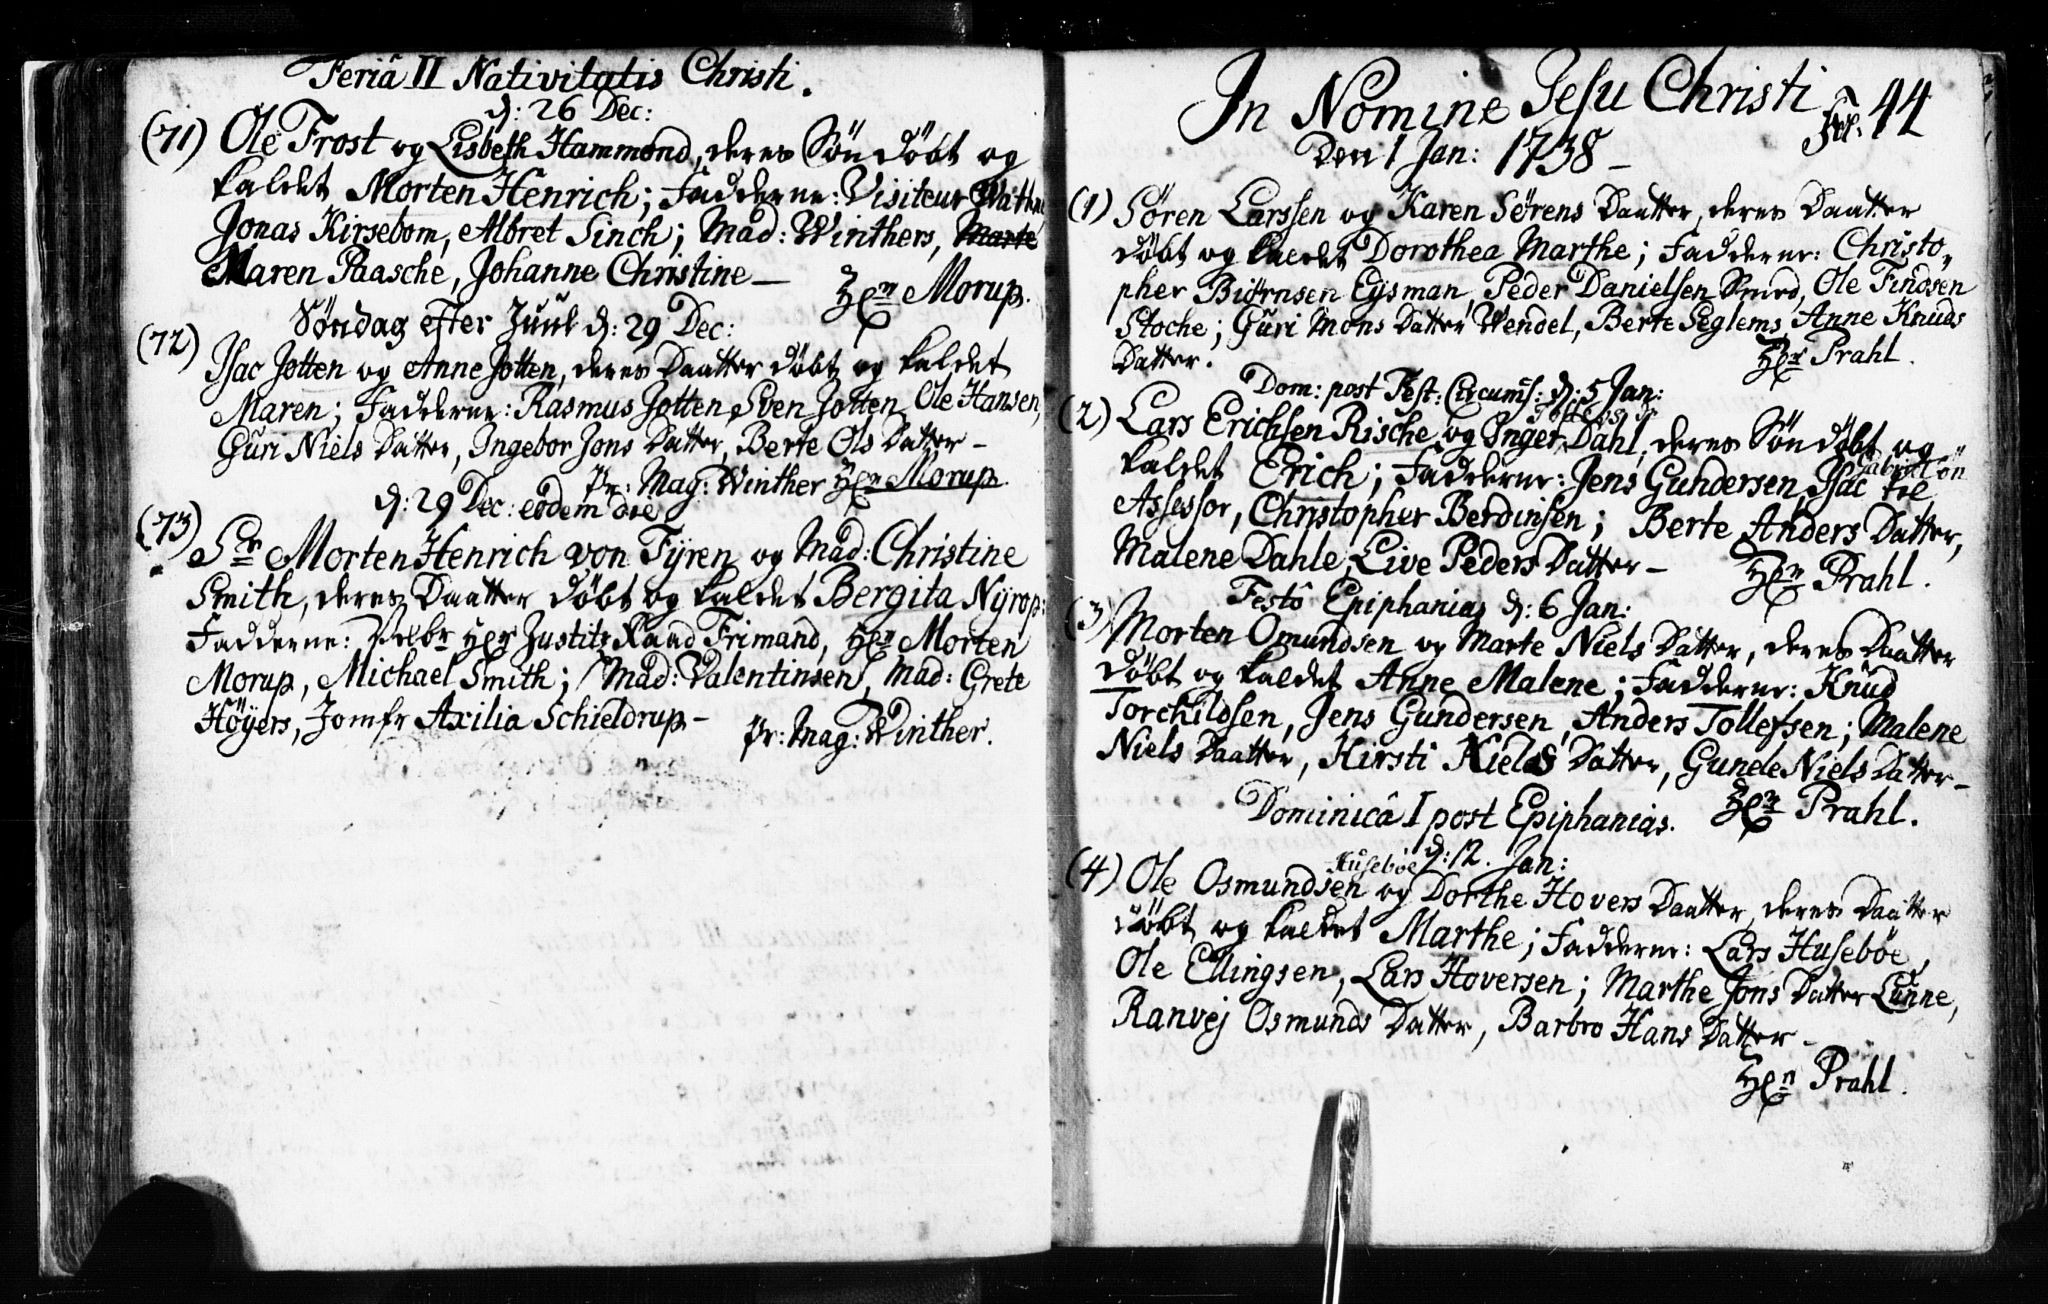 Feriâ II Nativitatis Christi.
d: 26 Dec:
(71) Ole Frost og Lisbeth Hammond, deres Søn döbt og
kaldet Morten Henrich; Fadderne: Visiteur
Jonas Kirsebom, Albret Sinch; Mad: Winthers, Marte
Maren Paasche, Johanne Christine —
Hr Morup.
Söndag efter Juul d: 29 Dec:
(72) Isac Jotten og Anne Jotten, deres Daatter döbt og kaldet
Maren; Fadderne: Rasmus Jotten, Sven Jotten, Ole Hansen,
Guri Niels Datter, Ingebor Jons Datter, Berte Ols Datter –
Pr: Mag: Winther Hr Morup.
d: 29 Dec: eodem die
(73) Sr Morten Henrich von Fyren og Mad: Christine
Smith, deres Daatter döbt og kaldet Bergita Nyrop:
Fadderne: Velbr Hr Justits Raad Frimand, Hr Morten
Morup, Michael Smith; Mad: Valentinsen, Mad: Grete
Höyers, Jomfr Axilia Schieldrup –
Pr: Mag: Winther.
In Nomine Jesu Christi
Fol: 44
Den 1 Jan: 1738 –
(1) Søren Larssen og Karen Sørens Daatter, deres Daatter
döbt og kaldet Dorothea Marthe; Fadderne: Christo,
pher Biørnsen Eysman, Peder Danielsen Smed, Ole Findsen
Stoche; Guri Mons Datter Wendel, Berte Seglems, Anne Knuds
Datter.
Hr Prahl.
Dom: post Fest: Circums: d: 5 Jan:
(2) Lars Erichsen Rische og Inger Dahl, deres Søn döbt og
kaldet Erich; Fadderne: Jens Gundersen, Isac Gabriel Søn til
Assessor, Christopher Berdinsen; Berte Anders Datter,
Malene Dahle, Live Peders Datter –
Hr Prahl.
Festô Epiphanias d: 6 Jan:
(3) Morten Omundsen og Marte Niels Datter, deres Daatter
döbt og kaldet Anne Malene; Fadderne: Knud
Torchildsen, Jens Gundersen, Anders Tollefsen; Malene
Niels Daatter, Kirsti Kields Datter, Gunele Niels Datter –
Hr Prahl.
Dominicâ I post Epiphanias.
d: 12. Jan:
Husebøe
(4) Ole Osmundsen og Dorthe Hovers Daatter, deres Daatter
döbt og kaldet Marthe; Fadderne: Lars Husebøe,
Ole Ellingsen, Lars Hoversen; Marthe Jons Datter Lunne,
Ranvej Osmunds Datter, Barbro Hans Datter –
Hr Prahl.